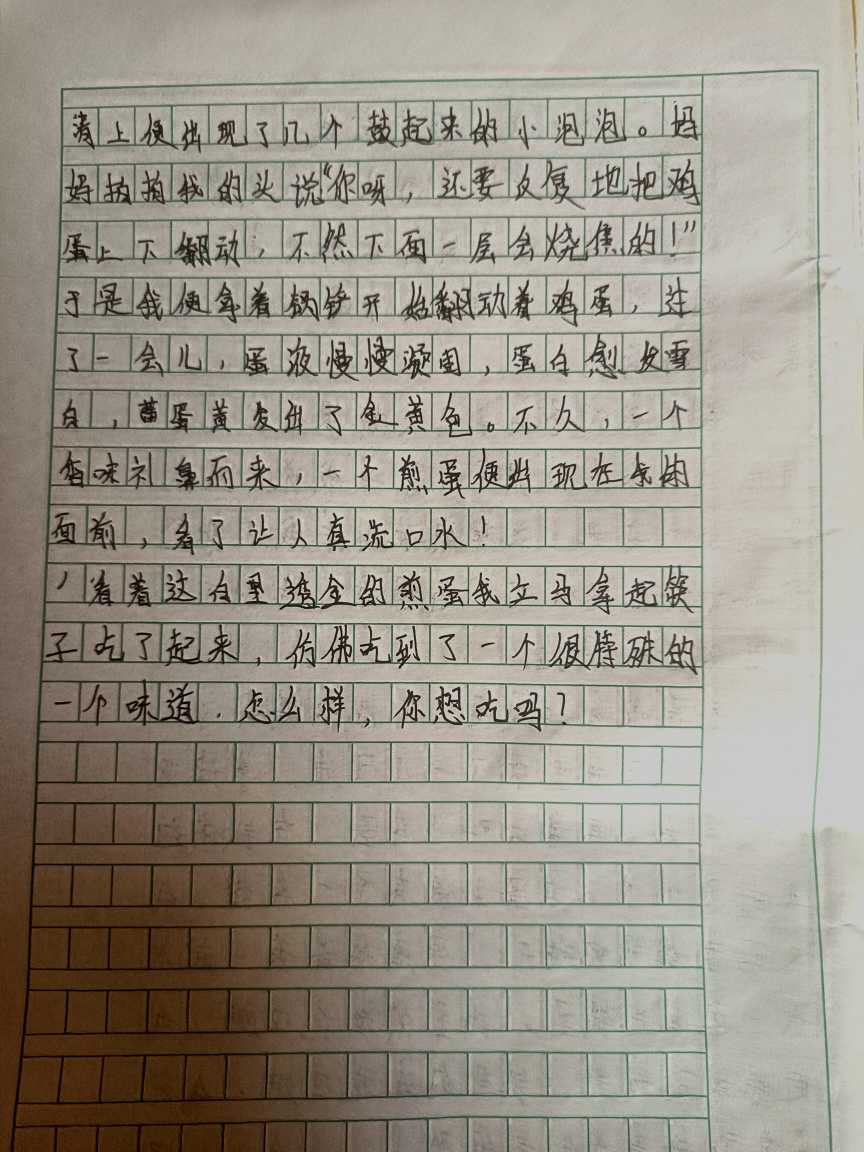 清上便出现了几个鼓起来的小泡泡。妈
妈拍拍我的头说“你呀，还要反复地把鸡
蛋上下翻动，不然下面一层会烧焦的！”
于是我便拿着锅铲开始翻动着鸡蛋，过
了一会儿，蛋液慢慢凝固，蛋白愈发雪
白，蛋黄发出了金黄色。不久，一个
香味扎鼻而来，一个煎蛋便出现在
面前，看了让人真流口水！
看着这白里透金的煎蛋我立马拿起筷
子吃了起来，仿佛吃到了一个很特殊的
一个味道．怎么样，你想吃吗？